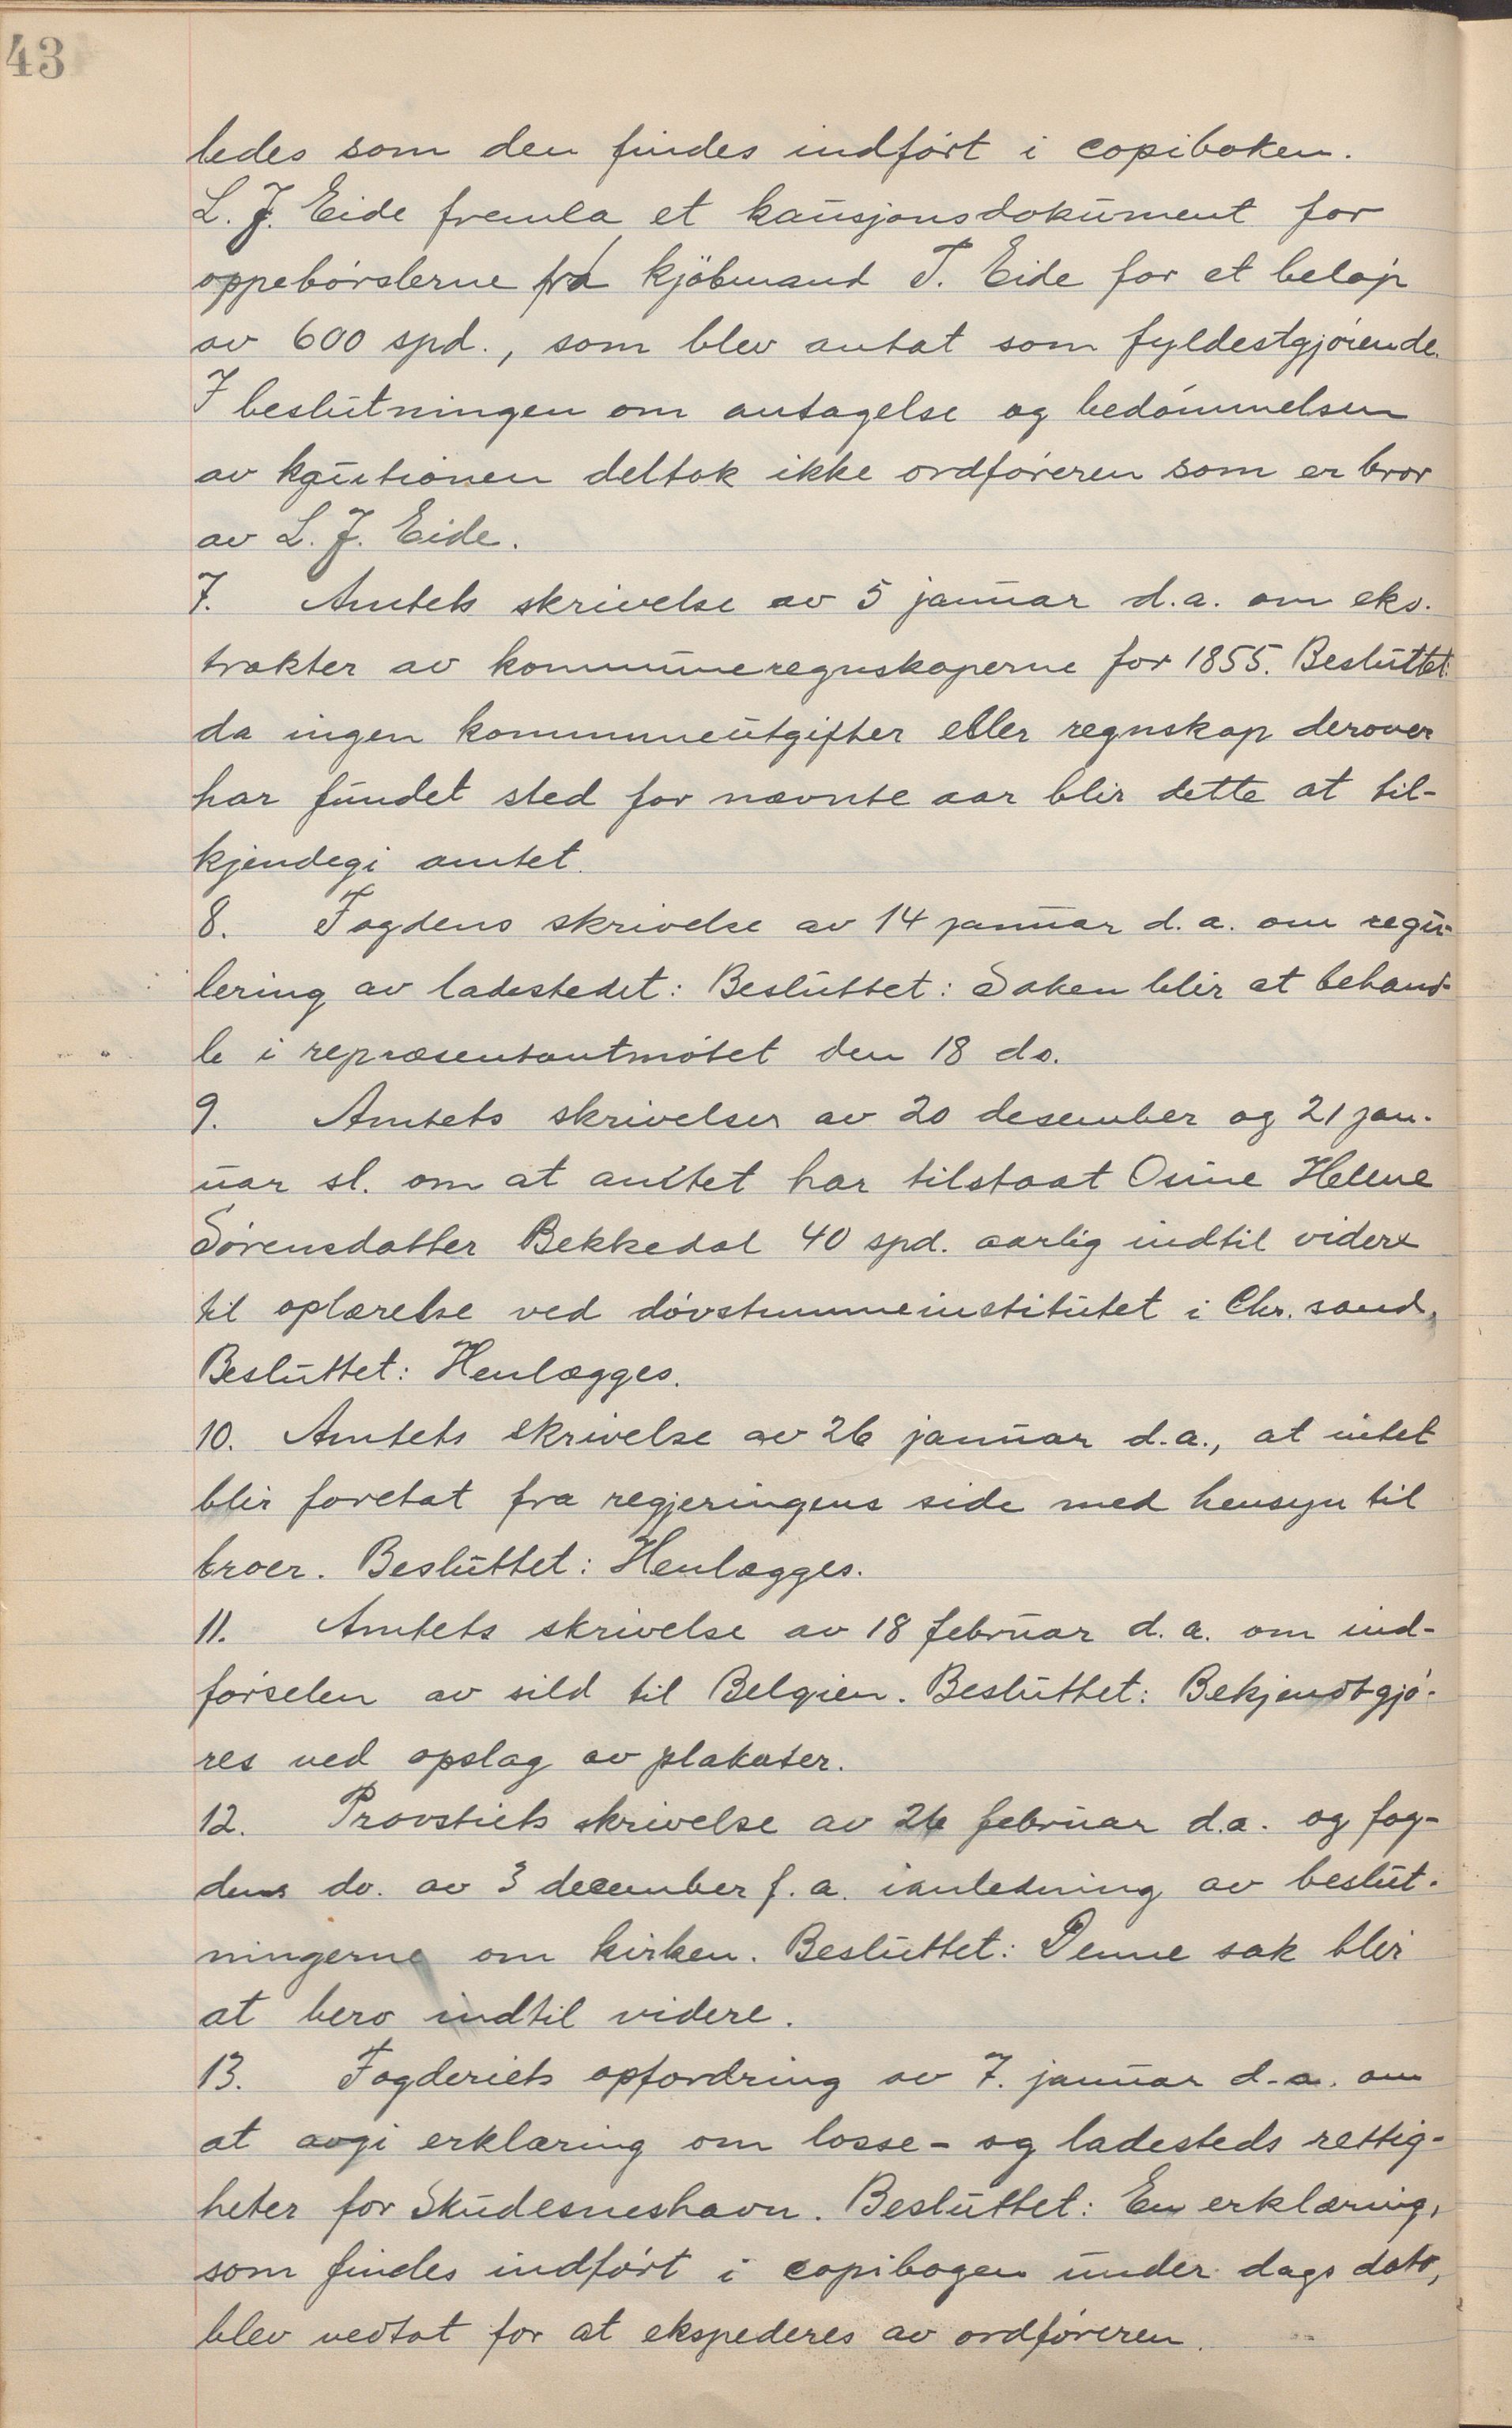 43
ledes som den findes indført i copiboken.
L. J. Eide fremla et kausjonsdokument for
oppebørslerne fra kjøbmand T. Eide for et beløp
av 600 spd., som blev antat som fyldestgjørende.
I beslutningen om antagelse og bedømmelsen
av kautionen deltok ikke ordføreren som er bror
av L. J. Eide.
7. Amtets skrivelse av 5 januar d.a. om eks-
trakter av kommuneregnskaperne for 1855. Besluttet:
da ingen kommuneutgifter eller regnskap derover
har fundet sted for nævnte aar blir dette at til-
kjendegi amtet.
8. Fogdens skrivelse av 14 januar d.a. om regu-
lering av ladestedet: Besluttet: Saken blir at behand-
le i repræsentantmøtet den 18 ds.
9. Amtets skrivelser av 20 desember og 21 jan-
uar sl. om at amtet har tilstaat Osine Helene
Sørensdatter Bekkedal 40 spd. aarlig indtil videre
til oplærelse ved døvstummeinstitutet i Chr.sand.
Besluttet: Henlægges.
10. Amtets skrivelse av 26 januar d.a., at intet
blir foretat fra regjeringens side med hensyn til
broer. Besluttet: Henlægges.
11. Amtets skrivelse av 18 februar d.a. om ind-
førselen av sild til Belgien. Besluttet: Bekjendtgjø-
res ved opslag av plakater.
12. Provstiets skrivelse av 26 februar d.a. og fog-
dens do. av 3 december f.a. ianledning av beslut-
ningerne om kirken. Besluttet: Denne sak blir
at bero indtil videre.
13. Fogderiets opfordring av 7. januar d.a. om
at avgi erklæring om losse- og ladesteds rettig-
heter for Skudesneshavn. Besluttet: En erklæring,
som findes indført i copibogen under dags dato,
blev vedtat for at ekspederes av ordføreren.